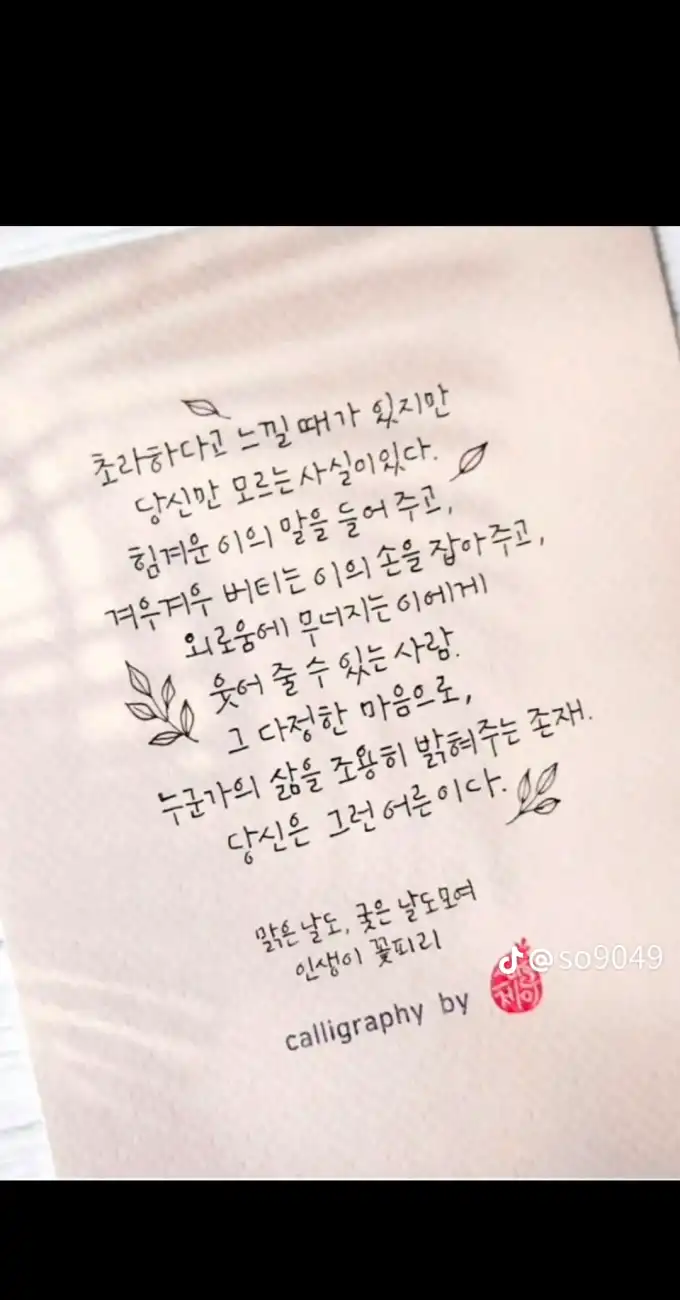 초라하다고 느낄 때가 있지만
당신만 모르는 사실이있다.
힘겨운 이의 말을 들어 주고,
겨우겨우 버티는 이의 손을 잡아주고,
외로움에 무너지는이에게
웃어 줄 수 있는 사람.
그 다정한 마음으로,
누군가의 삶을 조용히 밝혀주는 존재.
당신은 그런 어른이다.
맑은날도, 궂은 날도모여
인생이 꽃피리
@so9049
calligraphy by